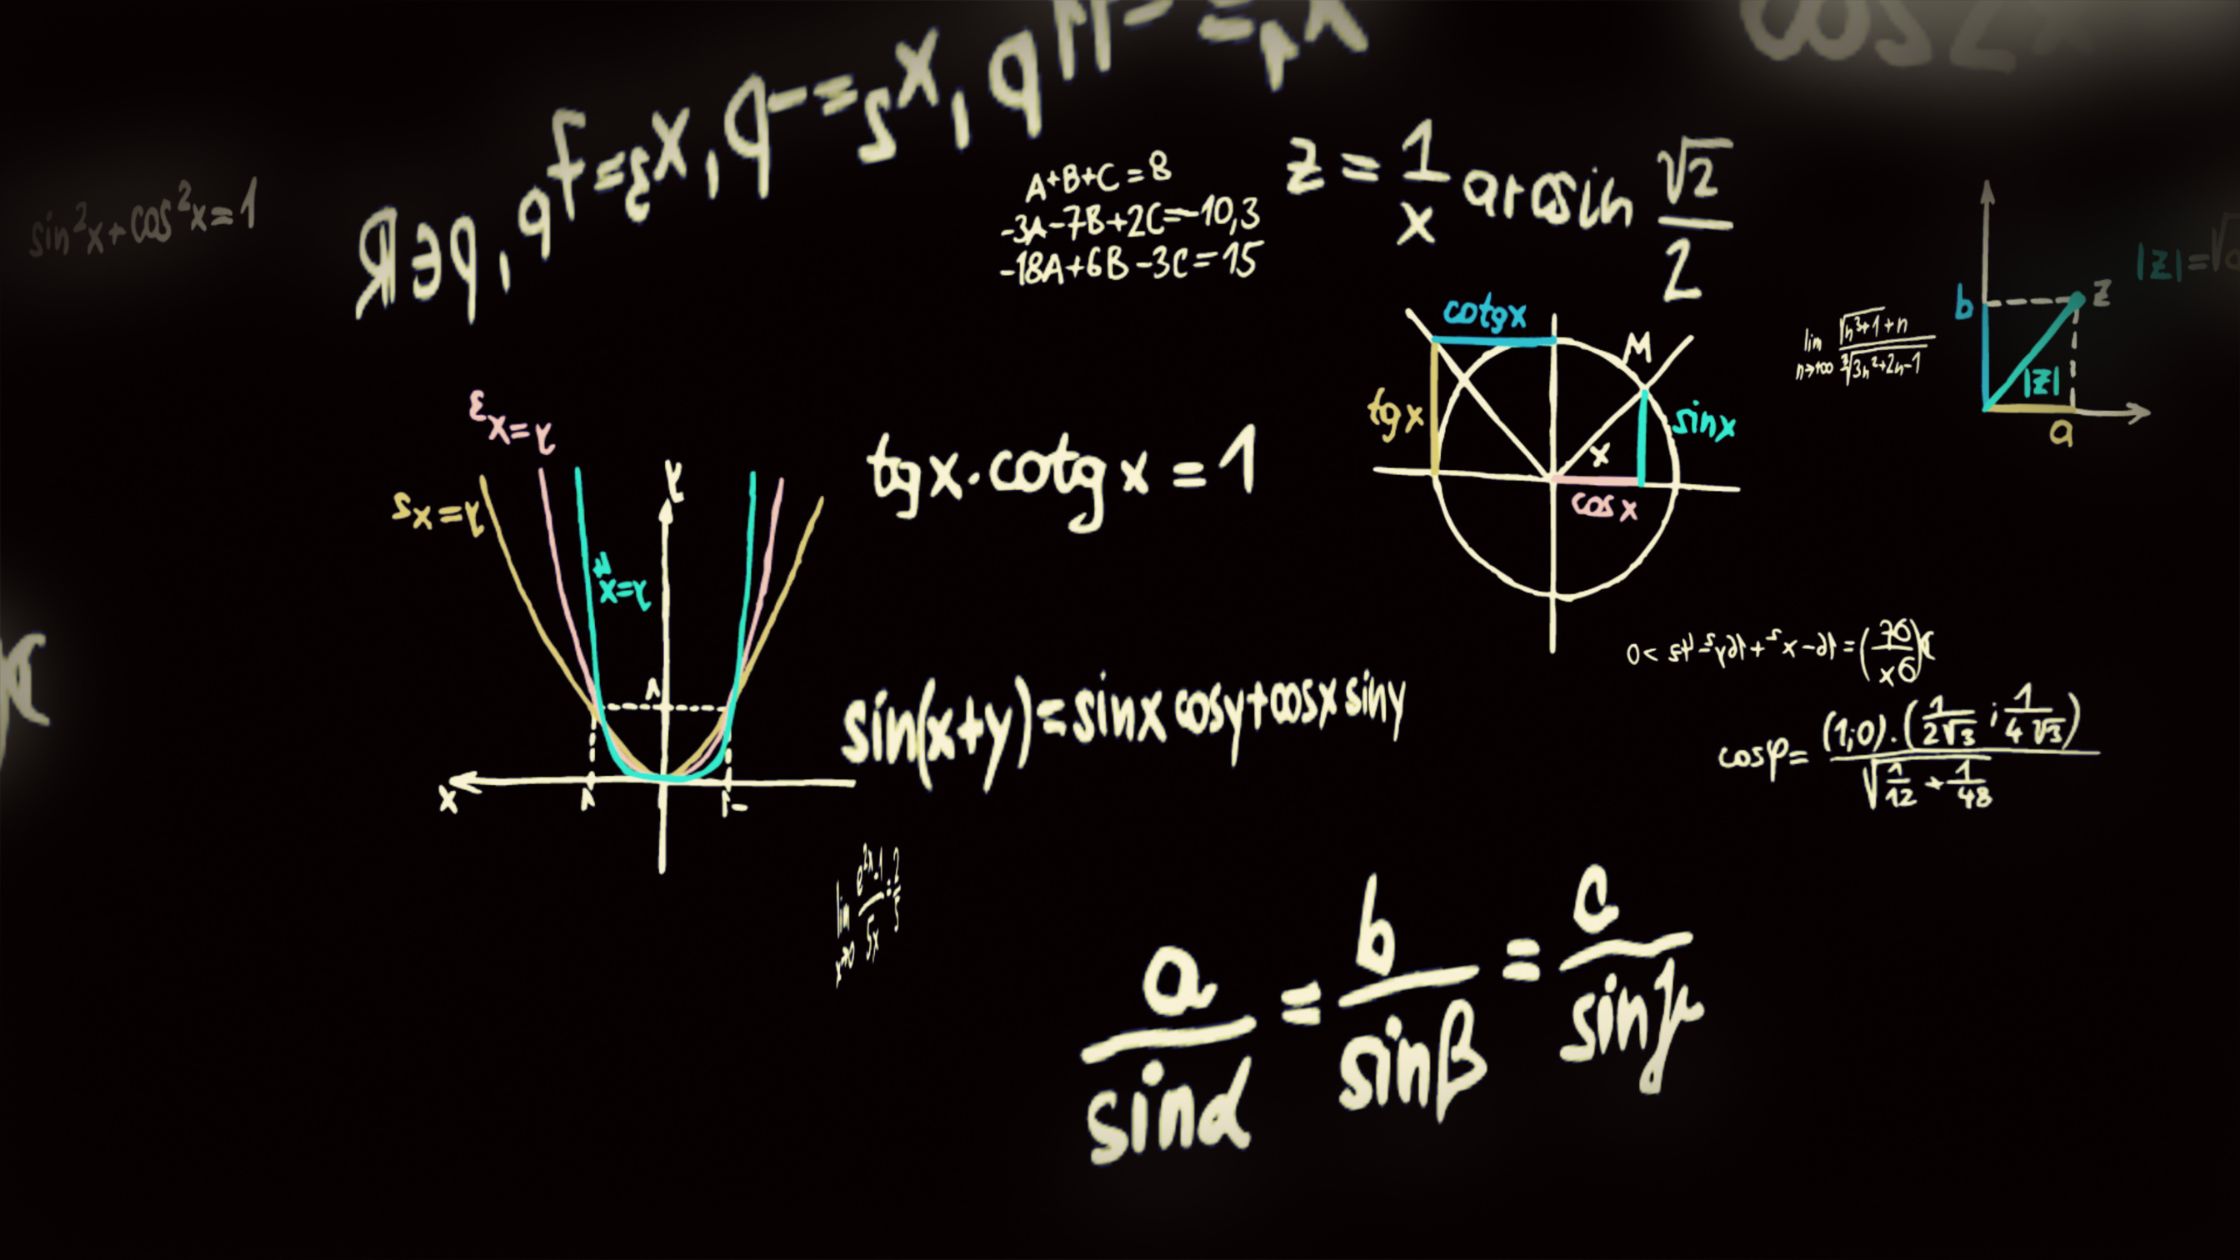 cos2x
sin²x+cos²x=1
A+B+C=8
-3A-7B+2C=-10,3
-18A+6B-3C=15
z=1/x arcsin √2/2
cotgx
M
tgx
sinx
x
cosx
lim n→+∞ (√(n³+1)+n)/∛(3n²+2n-1)
b
z
|z|
a
|z|=√
y=x³
y=x²
y=x⁴
y
1
x
1
-1
tgx·cotgx=1
sin(x+y)=sinx cosy+cosx siny
cosφ=((1;0)·(1/(2√3);1/(4√3)))/√(1/12+1/48)
a/sinα=b/sinβ=c/sinγ